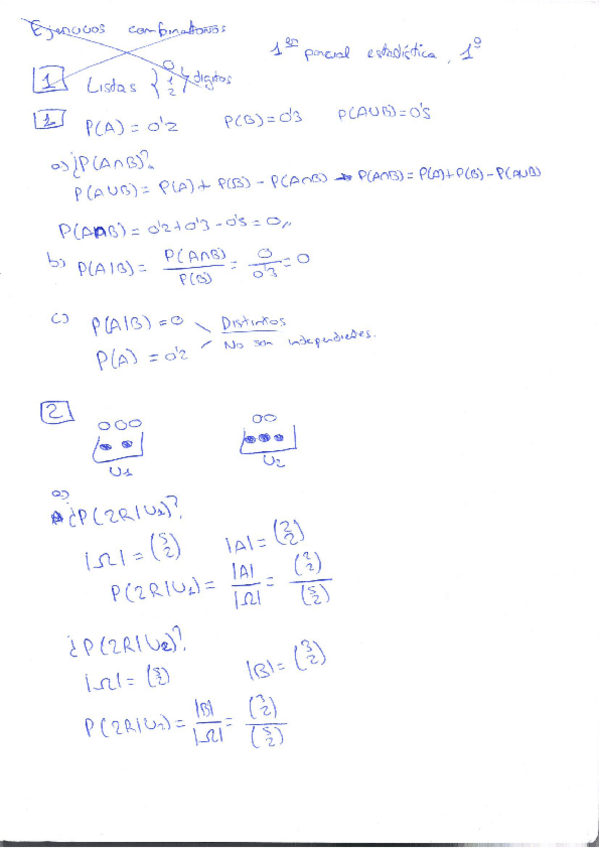 Ejercicios combinatorios:
1er parcial estadística, 1º
1 Listas { 0 1 2 } dígitos
1 P(A) = 0'2 P(B) = 0'3 P(A∪B) = 0'5
a) ¿P(A∩B)?
P(A∪B) = P(A) + P(B) - P(A∩B) → P(A∩B) = P(A) + P(B) - P(A∪B)
P(A∩B) = 0'2 + 0'3 - 0'5 = 0,,
b) P(A|B) = P(A∩B) / P(B) = 0 / 0'3 = 0
c) P(A|B) = 0 Distintos
P(A) = 0'2 No son independientes.
2
U1 U2
a)
¿P(2R|U1)?
|Ω| = (5 2) |A| = (2 2)
P(2R|U1) = |A| / |Ω| = (2 2) / (5 2)
¿P(2R|U2)?
|Ω| = (5 2) |B| = (3 2)
P(2R|U2) = |B| / |Ω| = (3 2) / (5 2)